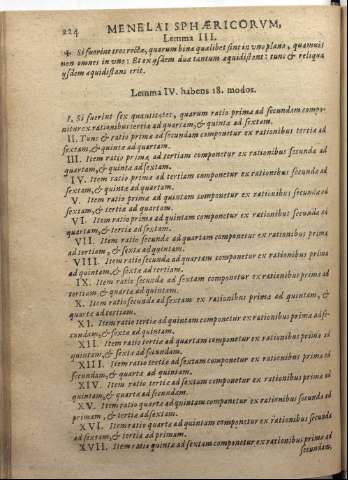 224
MENELAI SPHÆRICORVM,
Lemma III.
* Si fuerint tres rectæ, quarum binæ quælibet sint in vno plano, quamuis
non omnes in vno: Et ex ijsdem duæ tantum æquidistent: tunc & reliqua
ijsdem æquidistans erit.
Lemma IV. habens 18. modos.
I. Si fuerint sex quantitates, quarum ratio prima ad secundam compo-
nitur ex rationibus tertiæ ad quartam, & quintæ ad sextam.
II. Tunc & ratio primæ ad secundam componetur ex rationibus tertiæ ad
sextam, & quintæ ad quartam.
III. Item ratio primæ ad tertiam componetur ex rationibus secundæ ad
quartam, & quintæ ad sextam.
IV. Item ratio primæ ad tertiam componetur ex rationibus secundæ ad
sextam, & quintæ ad quartam.
V. Item ratio primæ ad quintam componetur ex rationibus secundæ ad
sextam, & tertiæ ad quartam.
VI. Item ratio primæ ad quintam componetur ex rationibus secundæ ad
quartam, & tertiæ ad sextam.
VII. Item ratio secundæ ad quartam componetur ex rationibus primæ
ad tertiam, & sextæ ad quintam.
VIII. Item ratio secundæ ad quartam componetur ex rationibus primæ
ad quintam, & sextæ ad tertiam.
IX. Item ratio secundæ ad sextam componetur ex rationibus primæ ad
tertiam, & quartæ ad quintam.
X. Item ratio secundæ ad sextam ex rationibus primæ ad quintam, &
quartæ ad tertiam.
XI. Item ratio tertiæ ad quartam componetur ex rationibus primæ ad se-
cundam, & sextæ ad quintam.
XII. Item ratio tertiæ ad quartam componetur ex rationibus primæ ad
quintam, & sextæ ad secundam.
XIII. Item ratio tertiæ ad sextam componetur ex rationibus primæ ad
secundam, & quartæ ad quintam.
XIV. Item ratio tertiæ ad sextam componetur ex rationibus primæ ad
quintam, & quartæ ad secundam.
XV. Item ratio quartæ ad quintam componetur ex rationibus secundæ ad
primam, & tertiæ ad sextam.
XVI. Item ratio quartæ ad quintam componetur ex rationibus secundæ
ad sextam, & tertiæ ad primam.
XVII. Item ratio quintæ ad sextam componetur ex rationibus primæ ad
secundam,